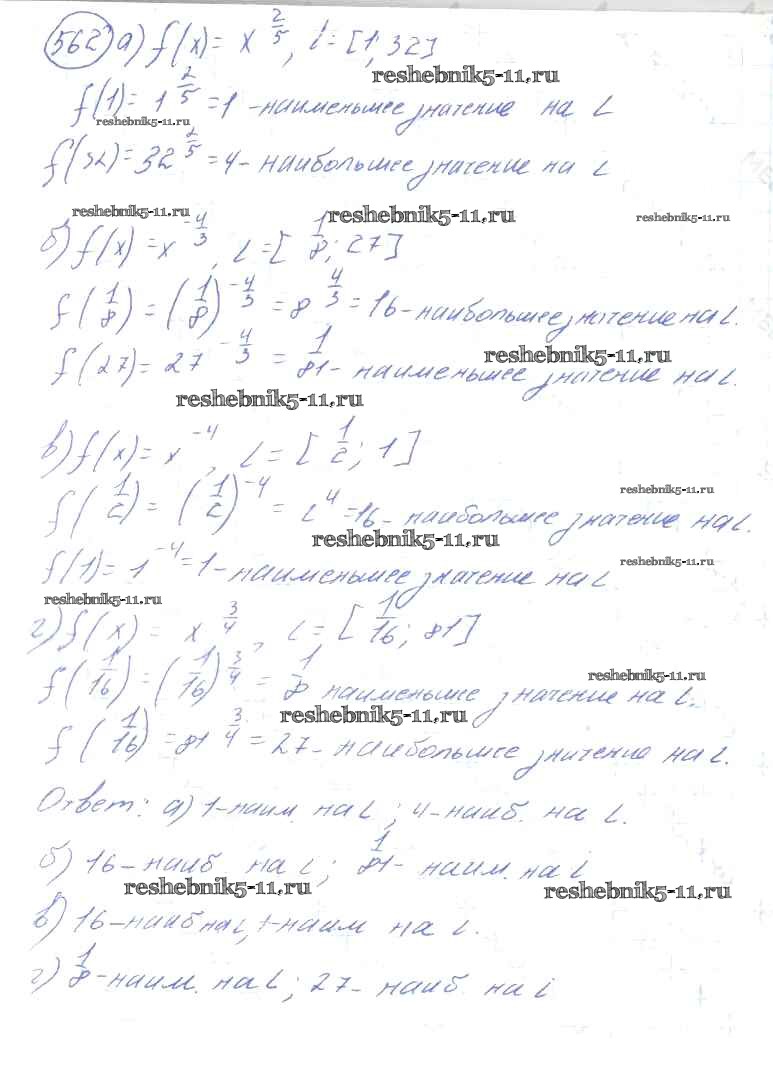 562 а) f(x) = x^(2/5), L = [1; 32]
reshebnik5-11.ru
f(1) = 1^(2/5) = 1 - наименьшее значение на L
reshebnik5-11.ru
f(32) = 32^(2/5) = 4 - наибольшее значение на L
reshebnik5-11.ru reshebnik5-11.ru reshebnik5-11.ru
б) f(x) = x^(-4/3), L = [1/8; 27]
f(1/8) = (1/8)^(-4/3) = 8^(4/3) = 16 - наибольшее значение на L.
reshebnik5-11.ru
f(27) = 27^(-4/3) = 1/81 - наименьшее значение на L.
reshebnik5-11.ru
в) f(x) = x^(-4), L = [1/2; 1]
reshebnik5-11.ru
f(1/2) = (1/2)^(-4) = 2^4 = 16 - наибольшее значение на L.
reshebnik5-11.ru
f(1) = 1^(-4) = 1 - наименьшее значение на L.
reshebnik5-11.ru
reshebnik5-11.ru
г) f(x) = x^(3/4), L = [1/16; 81]
reshebnik5-11.ru
f(1/16) = (1/16)^(3/4) = 1/8 наименьшее значение на L.
reshebnik5-11.ru
f(1/16) = 81^(3/4) = 27 - наибольшее значение на L.
Ответ: а) 1 - наим. на L; 4 - наиб. на L.
б) 16 - наиб на L; 1/81 - наим. на L
reshebnik5-11.ru reshebnik5-11.ru
в) 16 - наиб на L, 1 - наим на L.
г) 1/8 - наим. на L; 27 - наиб. на L